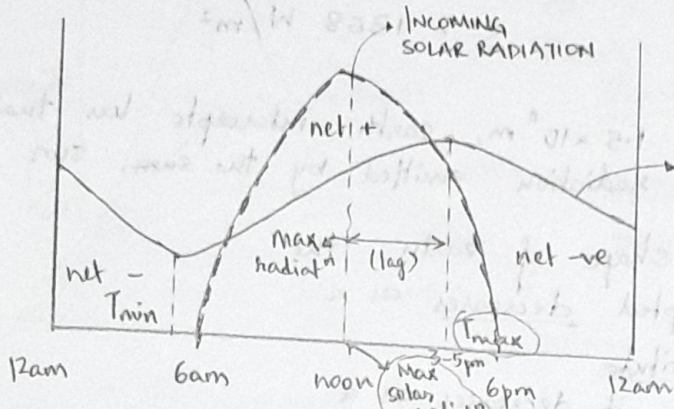 INCOMING
SOLAR RADIATION
net +
max
radiatⁿ
(lag)
net -
Tmin
net -ve
Tmax
3-5pm
12am
6am
noon
Max
solar
6pm
12am